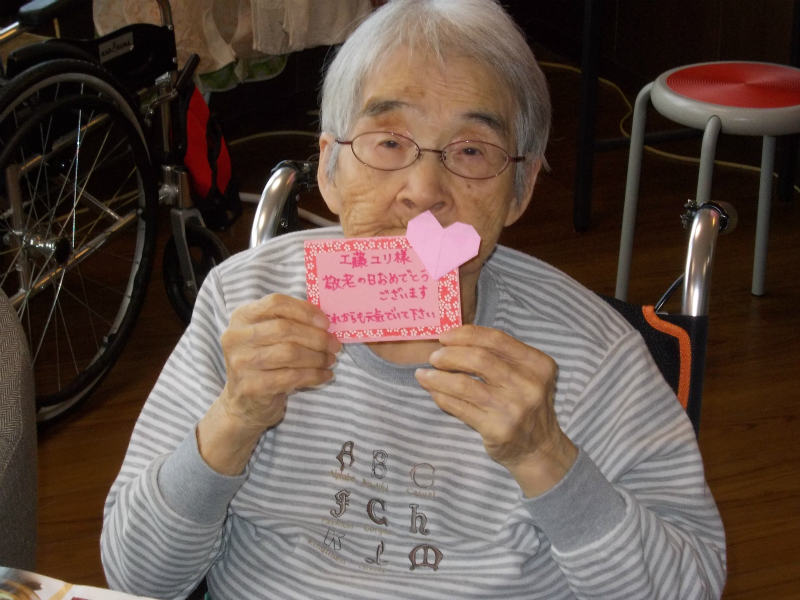 工藤ユリ様
敬老の日おめでとう
ございます
これからも元気でいて下さい
A B C
F C h
K I M